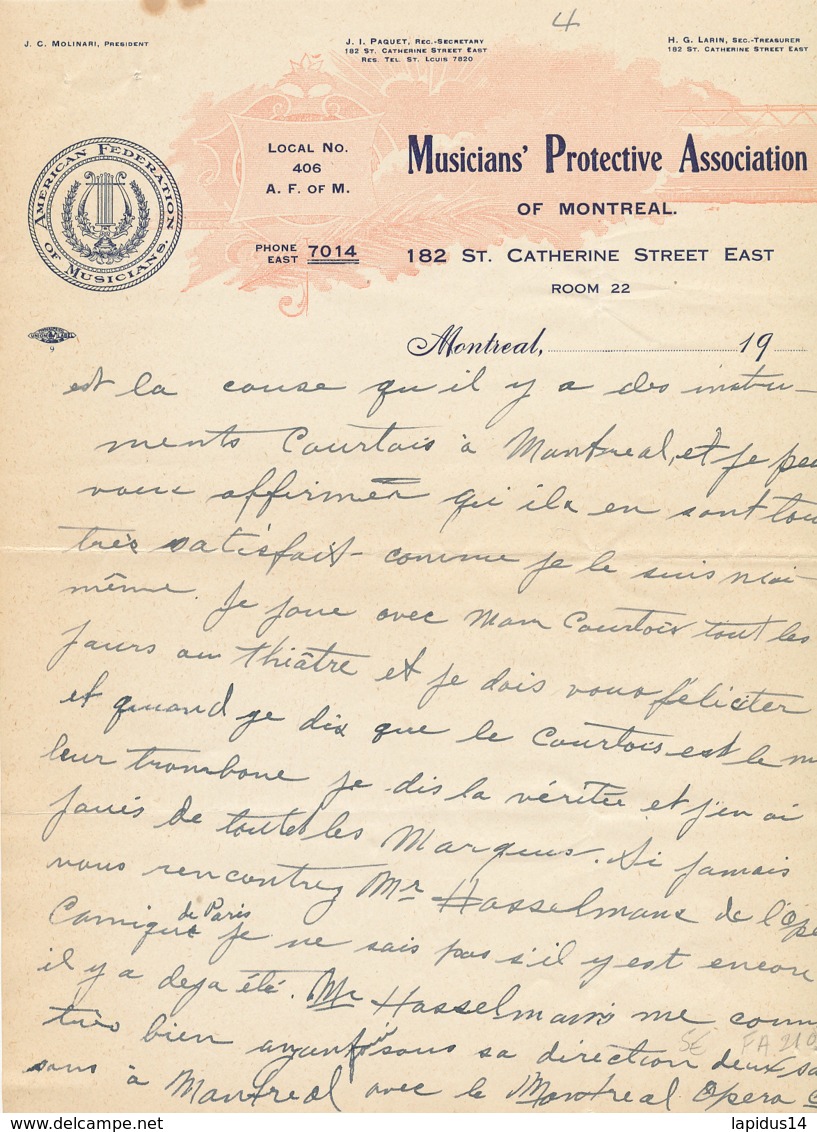 4
J. C. MOLINARI, PRESIDENT
J. I. PAQUET, REC.-SECRETARY
182 ST. CATHERINE STREET EAST
RES. TEL. ST. LOUIS 7820
H. G. LARIN, SEC.-TREASURER
182 ST. CATHERINE STREET EAST
AMERICAN FEDERATION OF MUSICIANS.
LOCAL NO.
406
A. F. OF M.
Musicians' Protective Association
OF MONTREAL.
PHONE EAST 7014
182 ST. CATHERINE STREET EAST
ROOM 22
UNION LABEL
9
Montreal, 19
est la cause qu'il y a des instru-
ments Courtois à Montreal, et je peu
vous affirmer qu'ils en sont tou
très satisfait - comme je le suis moi-
même. Je joue avec mon Courtois tout les
jours au thiâtre et je dois vous féliciter
et quand je dis que le Courtois est le m
leur trombone je dis la véritée et j'en ai
joués de toutes les Marques. Si jamais
vous rencontrez Mr Hasselmans de l'Ope
Comique de Paris je ne sais pas s'il y est encore
il y a deja été. Mr Hasselmans me conn
très bien ayant joué sous sa direction deux sa
sons à Montreal avec le Montreal Opera C
SE FA 210
lapidus14